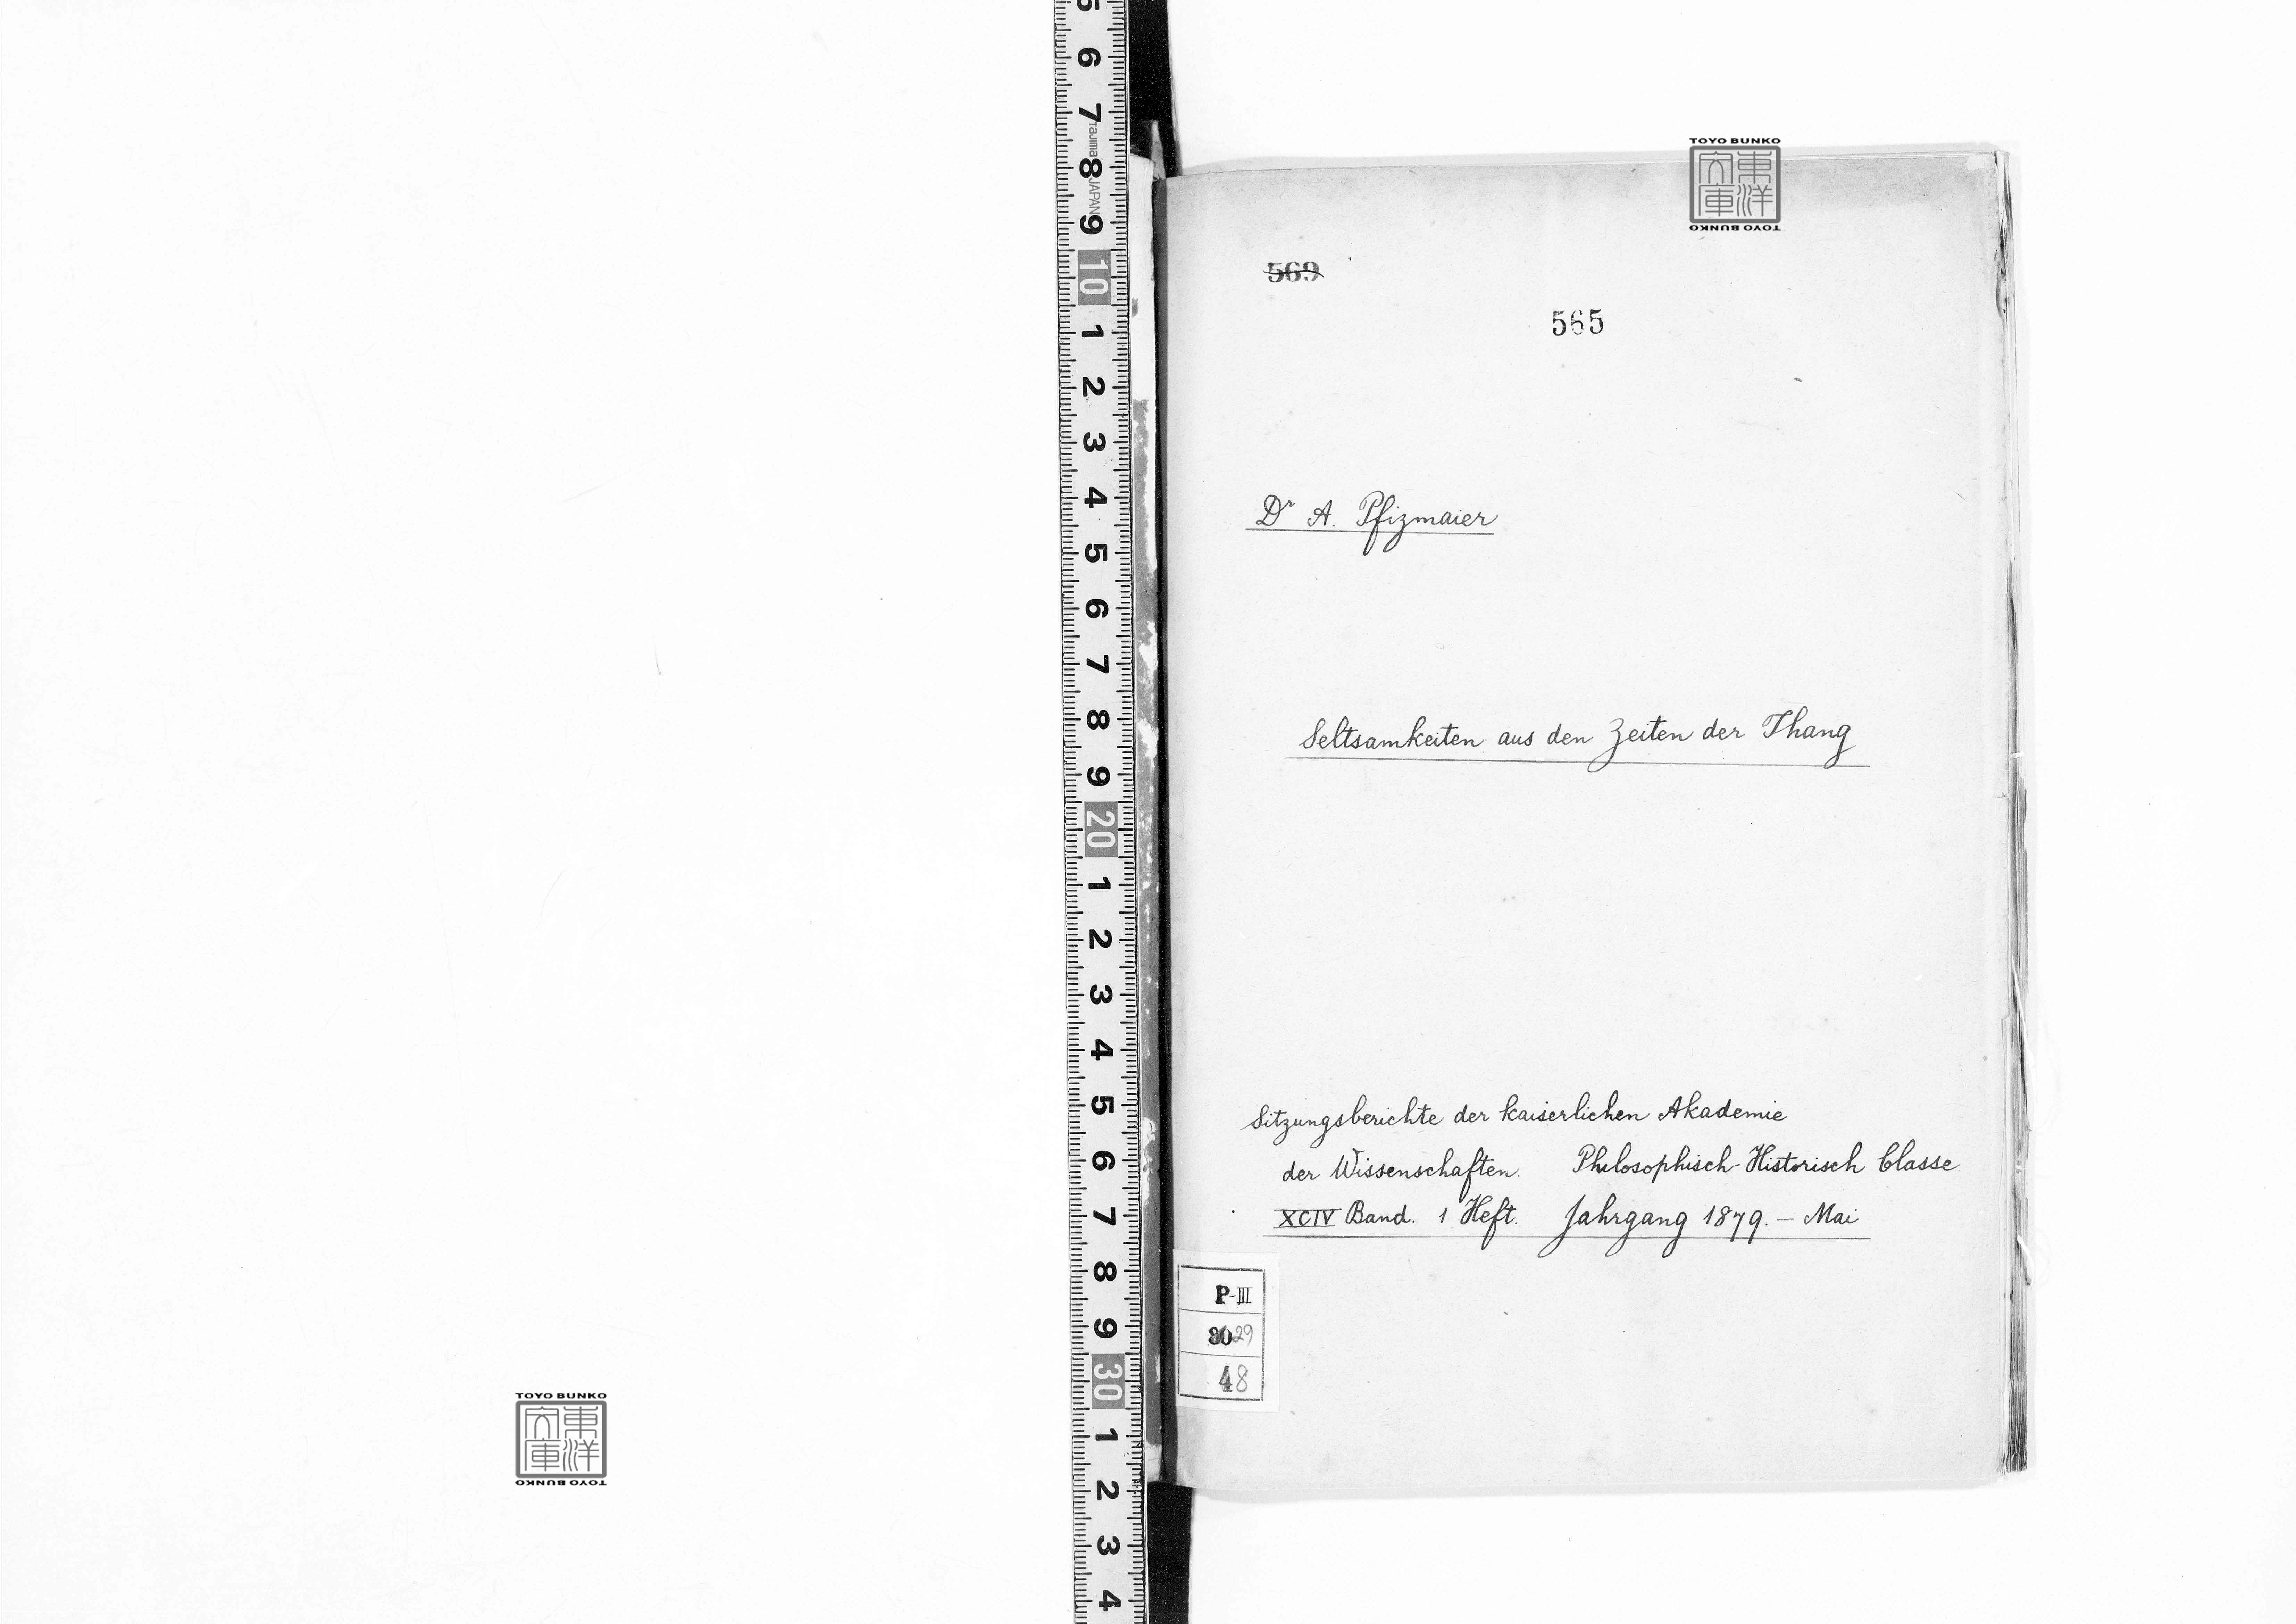 5
6
7
Tajima
8
JAPAN
9
10
1
2
3
4
5
6
7
8
9
20
1
2
3
4
5
6
7
8
9
30
1
2
3
4
TOYO BUNKO
東洋
文庫
TOYO BUNKO
569
565
Dr A. Pfizmaier
Seltsamkeiten aus den Zeiten der Thang
Sitzungsberichte der kaiserlichen Akademie
der Wissenschaften. Philosophisch-Historisch Classe
XCIV Band. 1 Heft. Jahrgang 1879. – Mai
P-III
29
48
TOYO BUNKO
東洋
文庫
TOYO BUNKO